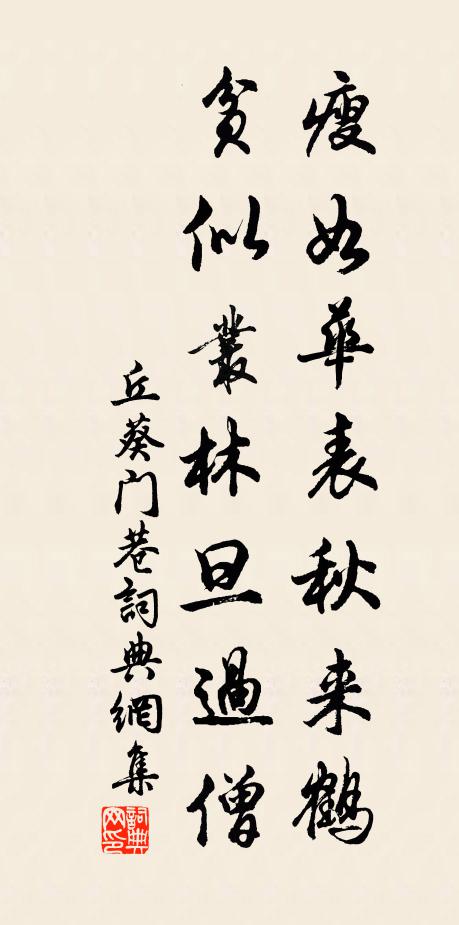 瘦如華表秋来鶴
貧似叢林旦過僧
丘葵门巷詞典網集
詞典網印